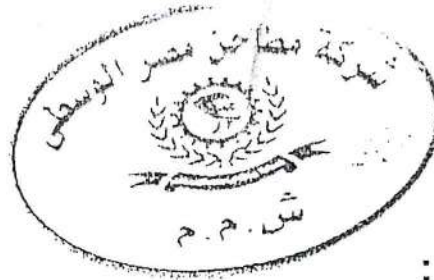 شركة مطاحن مصر الوسطى
ش.م.م
: